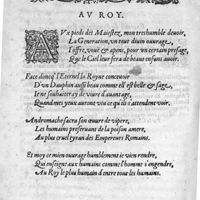 AV ROY.
AVx pieds des Maiestez, mon treshumble deuoir,
La Generation, vn tout diuin ouurage,
I'offre, voüe & apens, pour vn certain presage,
Que le Ciel leur fera de beaux enfans auoir.
Face doncq' l'Eternel la Royne conceuoir
D'vn Dauphin aussi beau comme ell' est belle & sage,
Ie ne souhaiteray de viure d'auantage,
Quand mes yeux auront veu ce qu'ils s'attendent voir.
Andromache sacra son œuure de vipere,
Les humains preseruant de la poison amere,
Au plus cruel tyran des Empereurs Romains.
Et moy ce mien ouurage humblement ie vien rendre,
Qui enseigne aux humains comme l'homme s'engendre,
Au Roy le plus humain d'entre tous les humains.